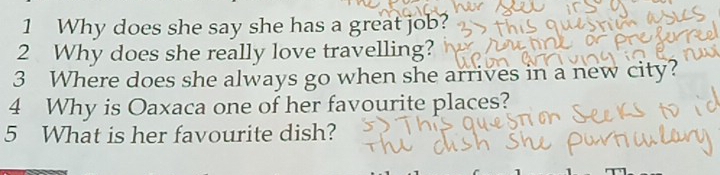 The
makes her feel
1 Why does she say she has a great job? 3> This question asks
2 Why does she really love travelling? her routine or preferred
upon arriving in a new
3 Where does she always go when she arrives in a new city?
4 Why is Oaxaca one of her favourite places?
5 What is her favourite dish? 5> This question seeks to id
The dish she particulary